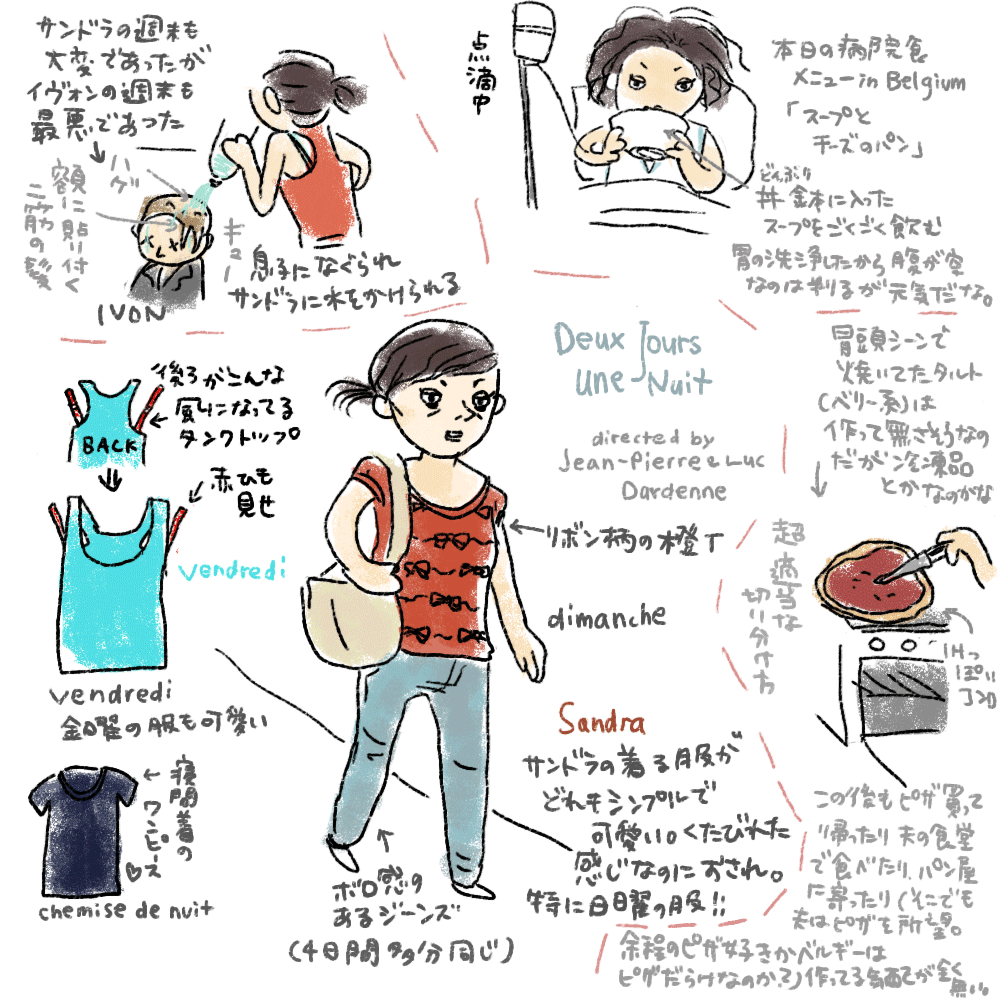 サンドラの週末も
大変であったが
イヴォンの週末も
最悪であった
ハゲ
額に貼り付く
二筋の髪
IVON
ギュー
息子になぐられ
サンドラに水をかけられる
点滴中
本日の病院食
メニュー in Belgium
「スープと
チーズのパン」
どんぶり
丼鉢に入った
スープをごくごく飲む
胃の洗浄したから腹が空
なのは判るが元気だな。
Deux Jours
Une Nuit
directed by
Jean-Pierre & Luc
Dardenne
冒頭シーンで
焼いてたタルト
(ベリー系)は
作って無さそうなの
だが冷凍品
とかなのかな
超適当な
切り分け方
IHっ
ぽい
コンロ
後ろがこんな
風になってる
タンクトップ。
BACK
赤ひも
見せ
vendredi
vendredi
金曜の服も可愛い
寝間着の
ワンピース
chemise de nuit
リボン柄の橙T
dimanche
Sandra
サンドラの着る服が
どれもシンプルで
可愛い。くたびれた
感じなのにおされ。
特に日曜の服!!
ボロ感の
あるジーンズ
(4日間多分同じ)
この後もピザ買って
帰ったり夫の食堂
で食べたり、パン屋
に寄ったり(そこでも
夫はピザを所望。
余程のピザ好きかベルギーは
ピザだらけなのか?)作ってる気配が全く
無い。